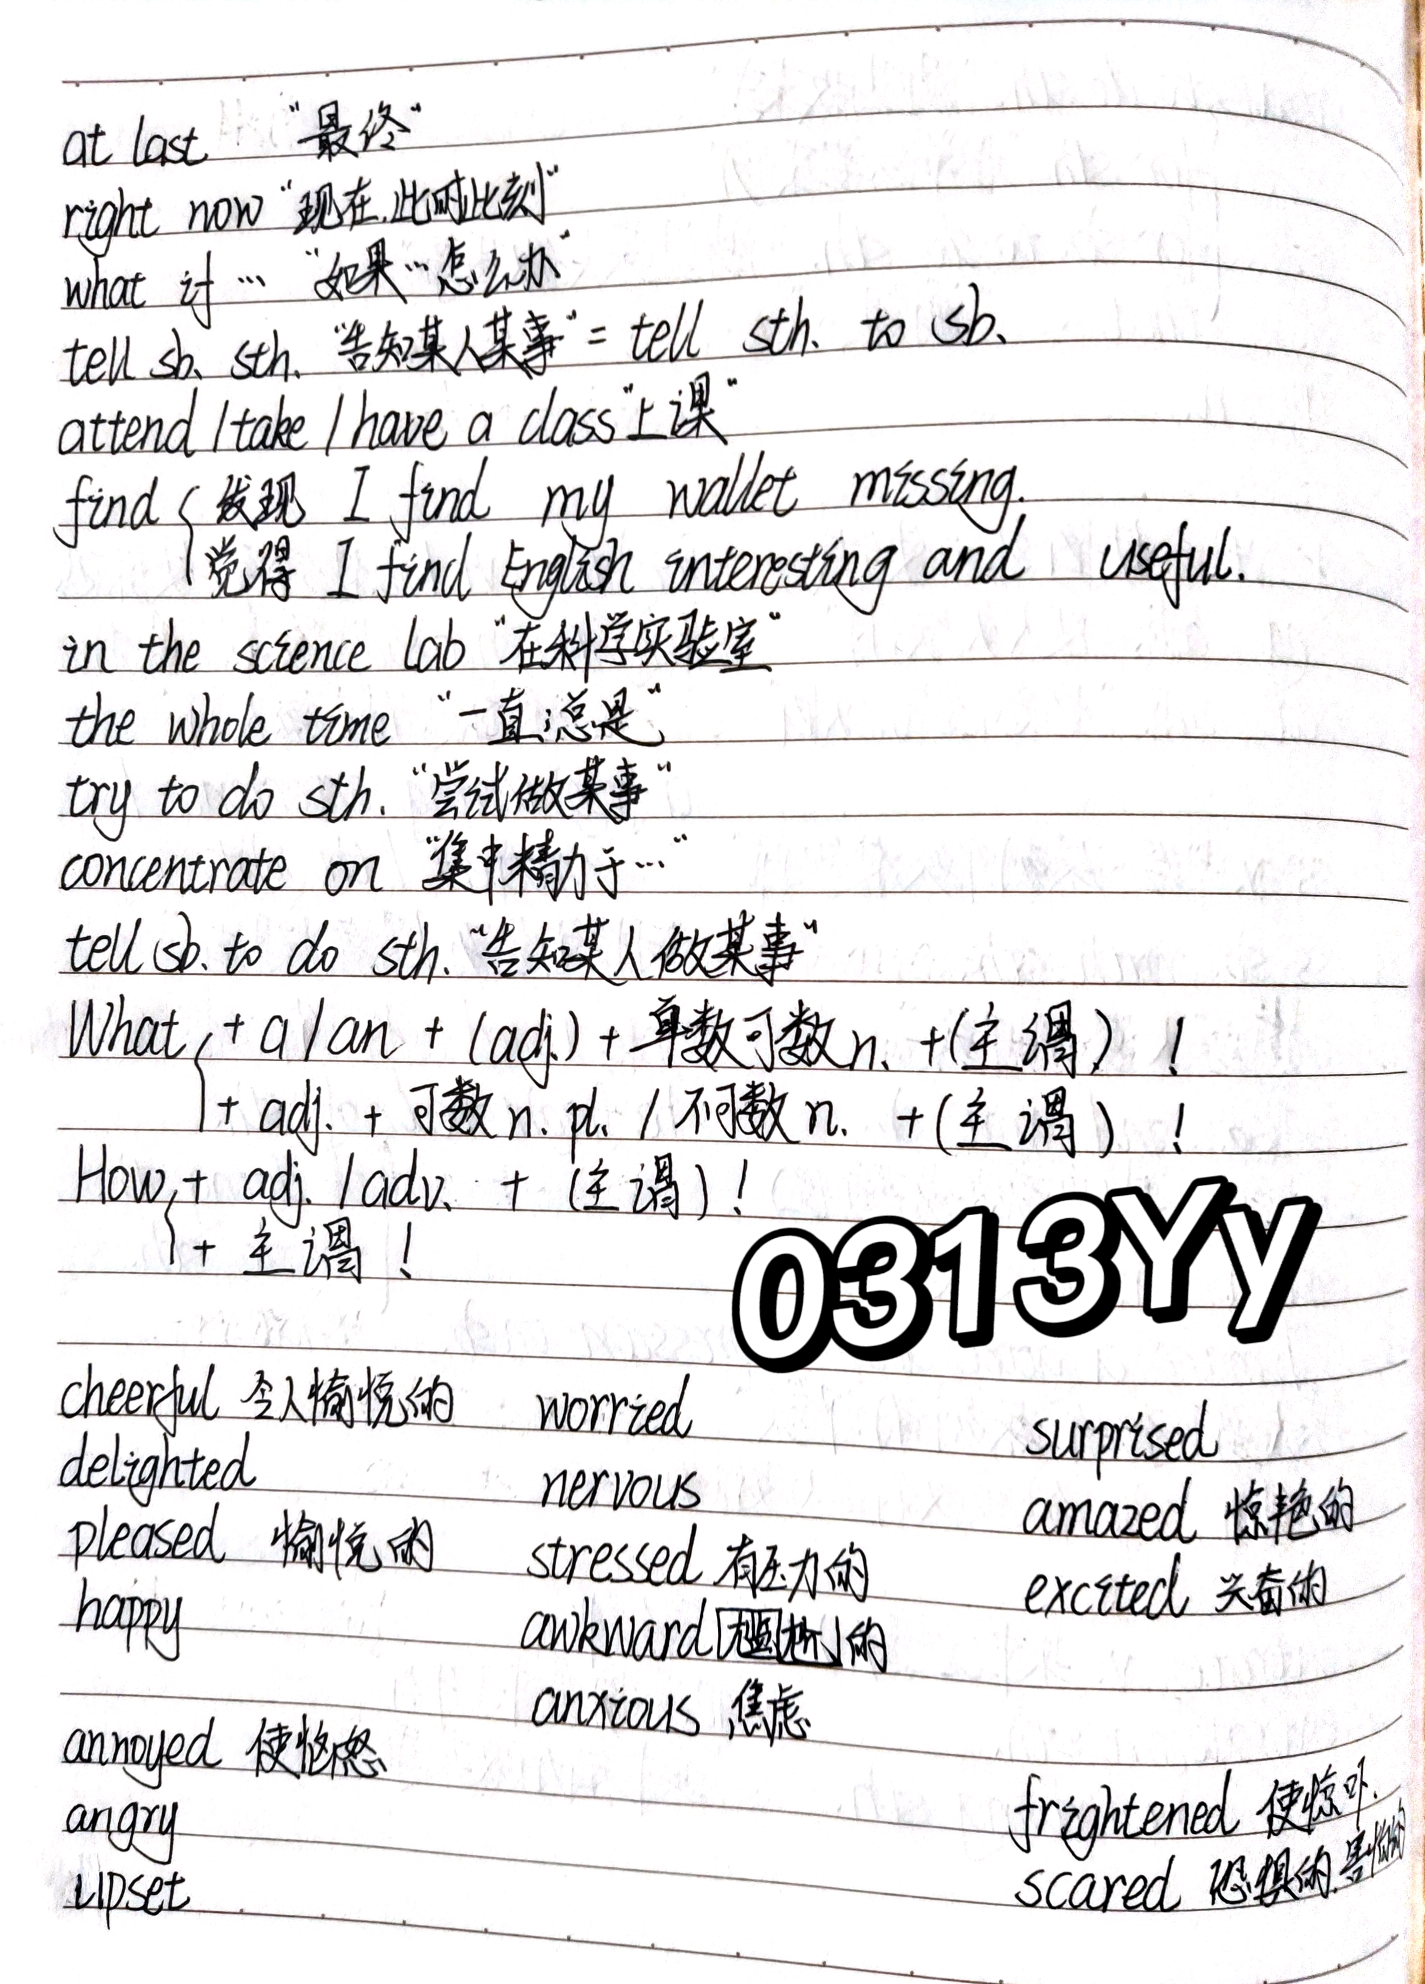 at last “最终”
right now “现在,此时此刻”
what if … “如果…怎么办”
tell sb. sth. “告知某人某事” = tell sth. to sb.
attend / take / have a class “上课”
find { 发现 I find my wallet missing.
觉得 I find English interesting and useful.
in the science lab “在科学实验室”
the whole time “一直;总是”
try to do sth. “尝试做某事”
concentrate on “集中精力于…”
tell sb. to do sth. “告知某人做某事”
What { + a / an + (adj.) + 单数可数n. + (主谓) !
+ adj. + 可数n. pl. / 不可数n. + (主谓) !
How { + adj. / adv. + (主谓) !
+ 主谓 !
0313Yy
cheerful 令人愉悦的
delighted
pleased 愉悦的
happy
worried
nervous
stressed 有压力的
awkward 尴尬的
anxious 焦虑
surprised
amazed 惊艳的
excited 兴奋的
annoyed 使恼怒
angry
upset
frightened 使惊吓.
scared 恐惧的,害怕的